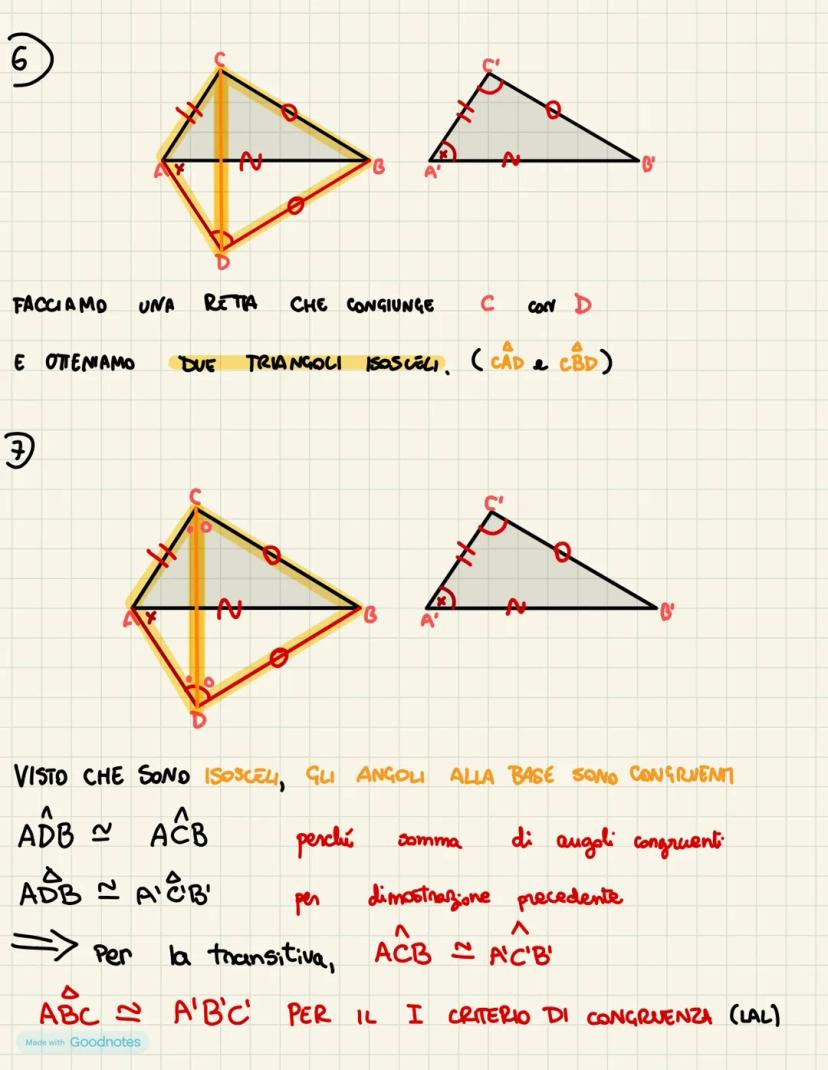 6
C
C'
A
x
B
A'
x
B'
D
FACCIAMO UNA RETTA CHE CONGIUNGE C con D
E OTTENIAMO DUE TRIANGOLI ISOSCELI. (CAD e CBD)
7
C
C'
A
x
B
A'
x
B'
D
VISTO CHE SONO ISOSCELI, GLI ANGOLI ALLA BASE SONO CONGRUENTI
ADB ≅ ACB perché somma di angoli congruenti
ADB ≅ A'C'B' per dimostrazione precedente
⇒ Per la transitiva, ACB ≅ A'C'B'
ABC ≅ A'B'C' PER IL I CRITERIO DI CONGRUENZA (LAL)
Made with Goodnotes